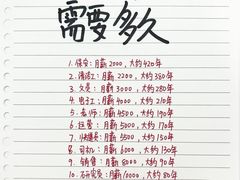 需要多久
1.保安：月薪2000，大约420年
2.清洁工：月薪2200，大约380年
3.文员：月薪3000，大约280年
4.电工：月薪4000，大约210年
5.老师：月薪4500，大约190年
6.运营：月薪5000，大约170年
7.快递员：月薪5500，大约150年
8.司机：月薪6000，大约130年
9.销售：月薪8000，大约90年
10.研究员：月薪10000，大约80年